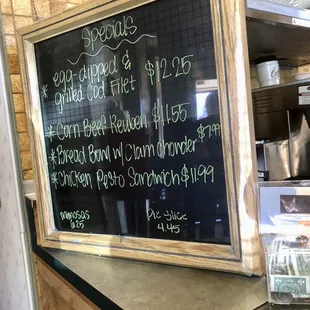 Specials
* egg-dipped & $12.25
grilled Cod Filet
* Corn Beef Reuben $11.55
* Bread Bowl w/ Clam chowder $7.99
* Chicken Pesto Sandwich $11.99
mimosas
6.25
Pie Slice
4.45